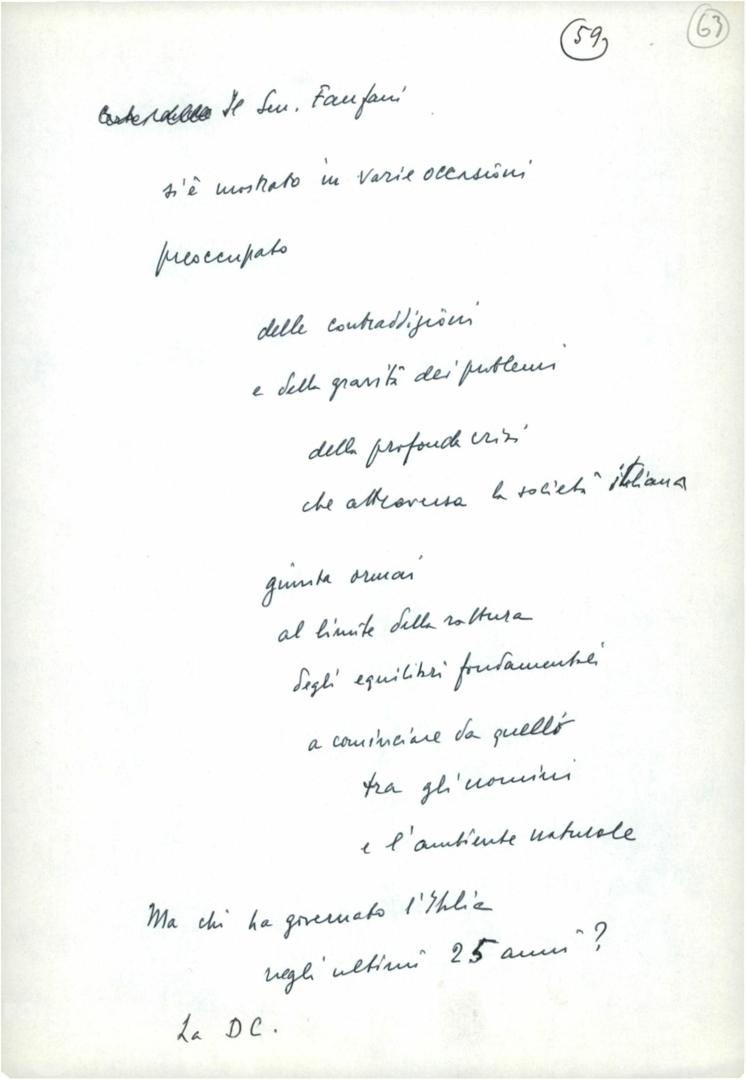 59
63
Il Sen. Fanfani
si è mostrato in varie occasioni
preoccupato
delle contraddizioni
e della gravità dei problemi
della profonda crisi
che attraversa la società italiana
giunta ormai
al limite della rottura
degli equilibri fondamentali
a cominciare da quello
tra gli uomini
e l'ambiente naturale
Ma chi ha governato l'Italia
negli ultimi 25 anni?
La DC.